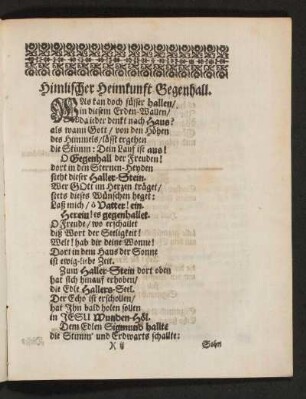 Himlischer Heimkunft Gegenhall.
WAs kan doch süsser hallen/
in diesem Erden-Wallen/
da ieder denkt nach Haus?
als wann Gott / von den Höhen
des Himmels / lässt ergehen
die Stimm: Dein Lauf ist aus!
O Gegenhall der Freuden!
dort in den Sternen-Heyden
stehet dieser Haller-Stein.
Wer GOtt im Herzen träget/
stets dieses Wünschen heget:
Laß mich / ô Vatter! ein.
Herein! es gegenhallet.
O Freude / wo erschallet
diß Wort der Seeligkeit!
Welt! hab dir deine Wonne!
Dort in dem Haus der Sonne
ist ewig-liebe Zeit.
Zum Haller-Stein dort oben
hat sich hinauf erhoben/
die Edle Hallers-Seel.
Der Echo ist erschollen/
hat Ihn bald holen sollen
in JESU Wunden-Höl.
Dem Edlen Sigmund hallte
die Stimm' und Erdwarts schallte:
X ij
Sohn